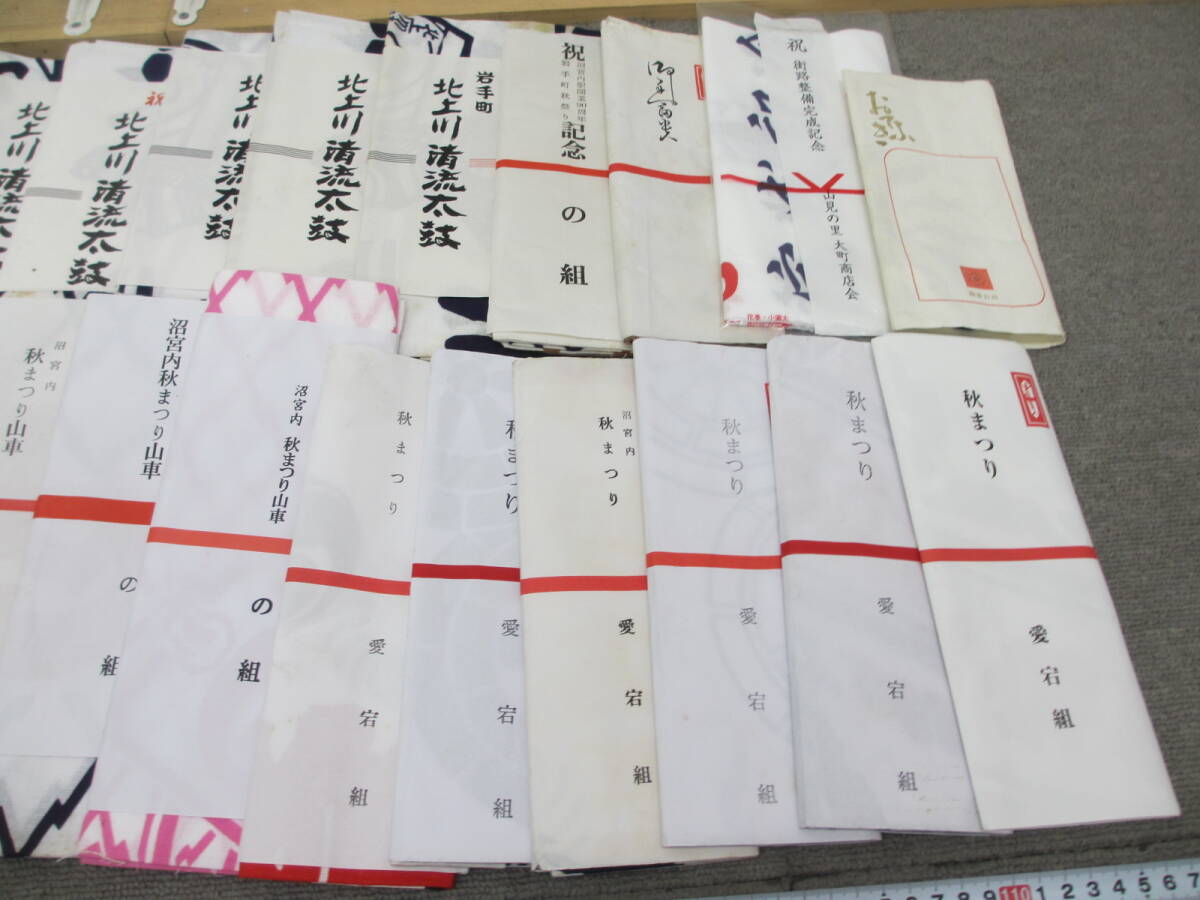 北上川 清流太鼓
祝
北上川 清流太鼓
北上川 清流太鼓
北上川 清流太鼓
岩手町
北上川 清流太鼓
祝
沼宮内駅開業90周年
岩手町秋祭り
記念
の組
祝
街路整備完成記念
山見の里 大町商店会
花巻・小瀬太
沼宮内
秋まつり山車
沼宮内秋まつり山車
の
組
沼宮内 秋まつり山車
の
組
秋まつり
愛宕組
秋まつり
愛宕組
沼宮内
秋まつり
愛宕組
秋まつり
愛宕組
秋まつり
愛宕組
秋まつり
愛宕組
8 9 110 1 2 3 4 5 6 7